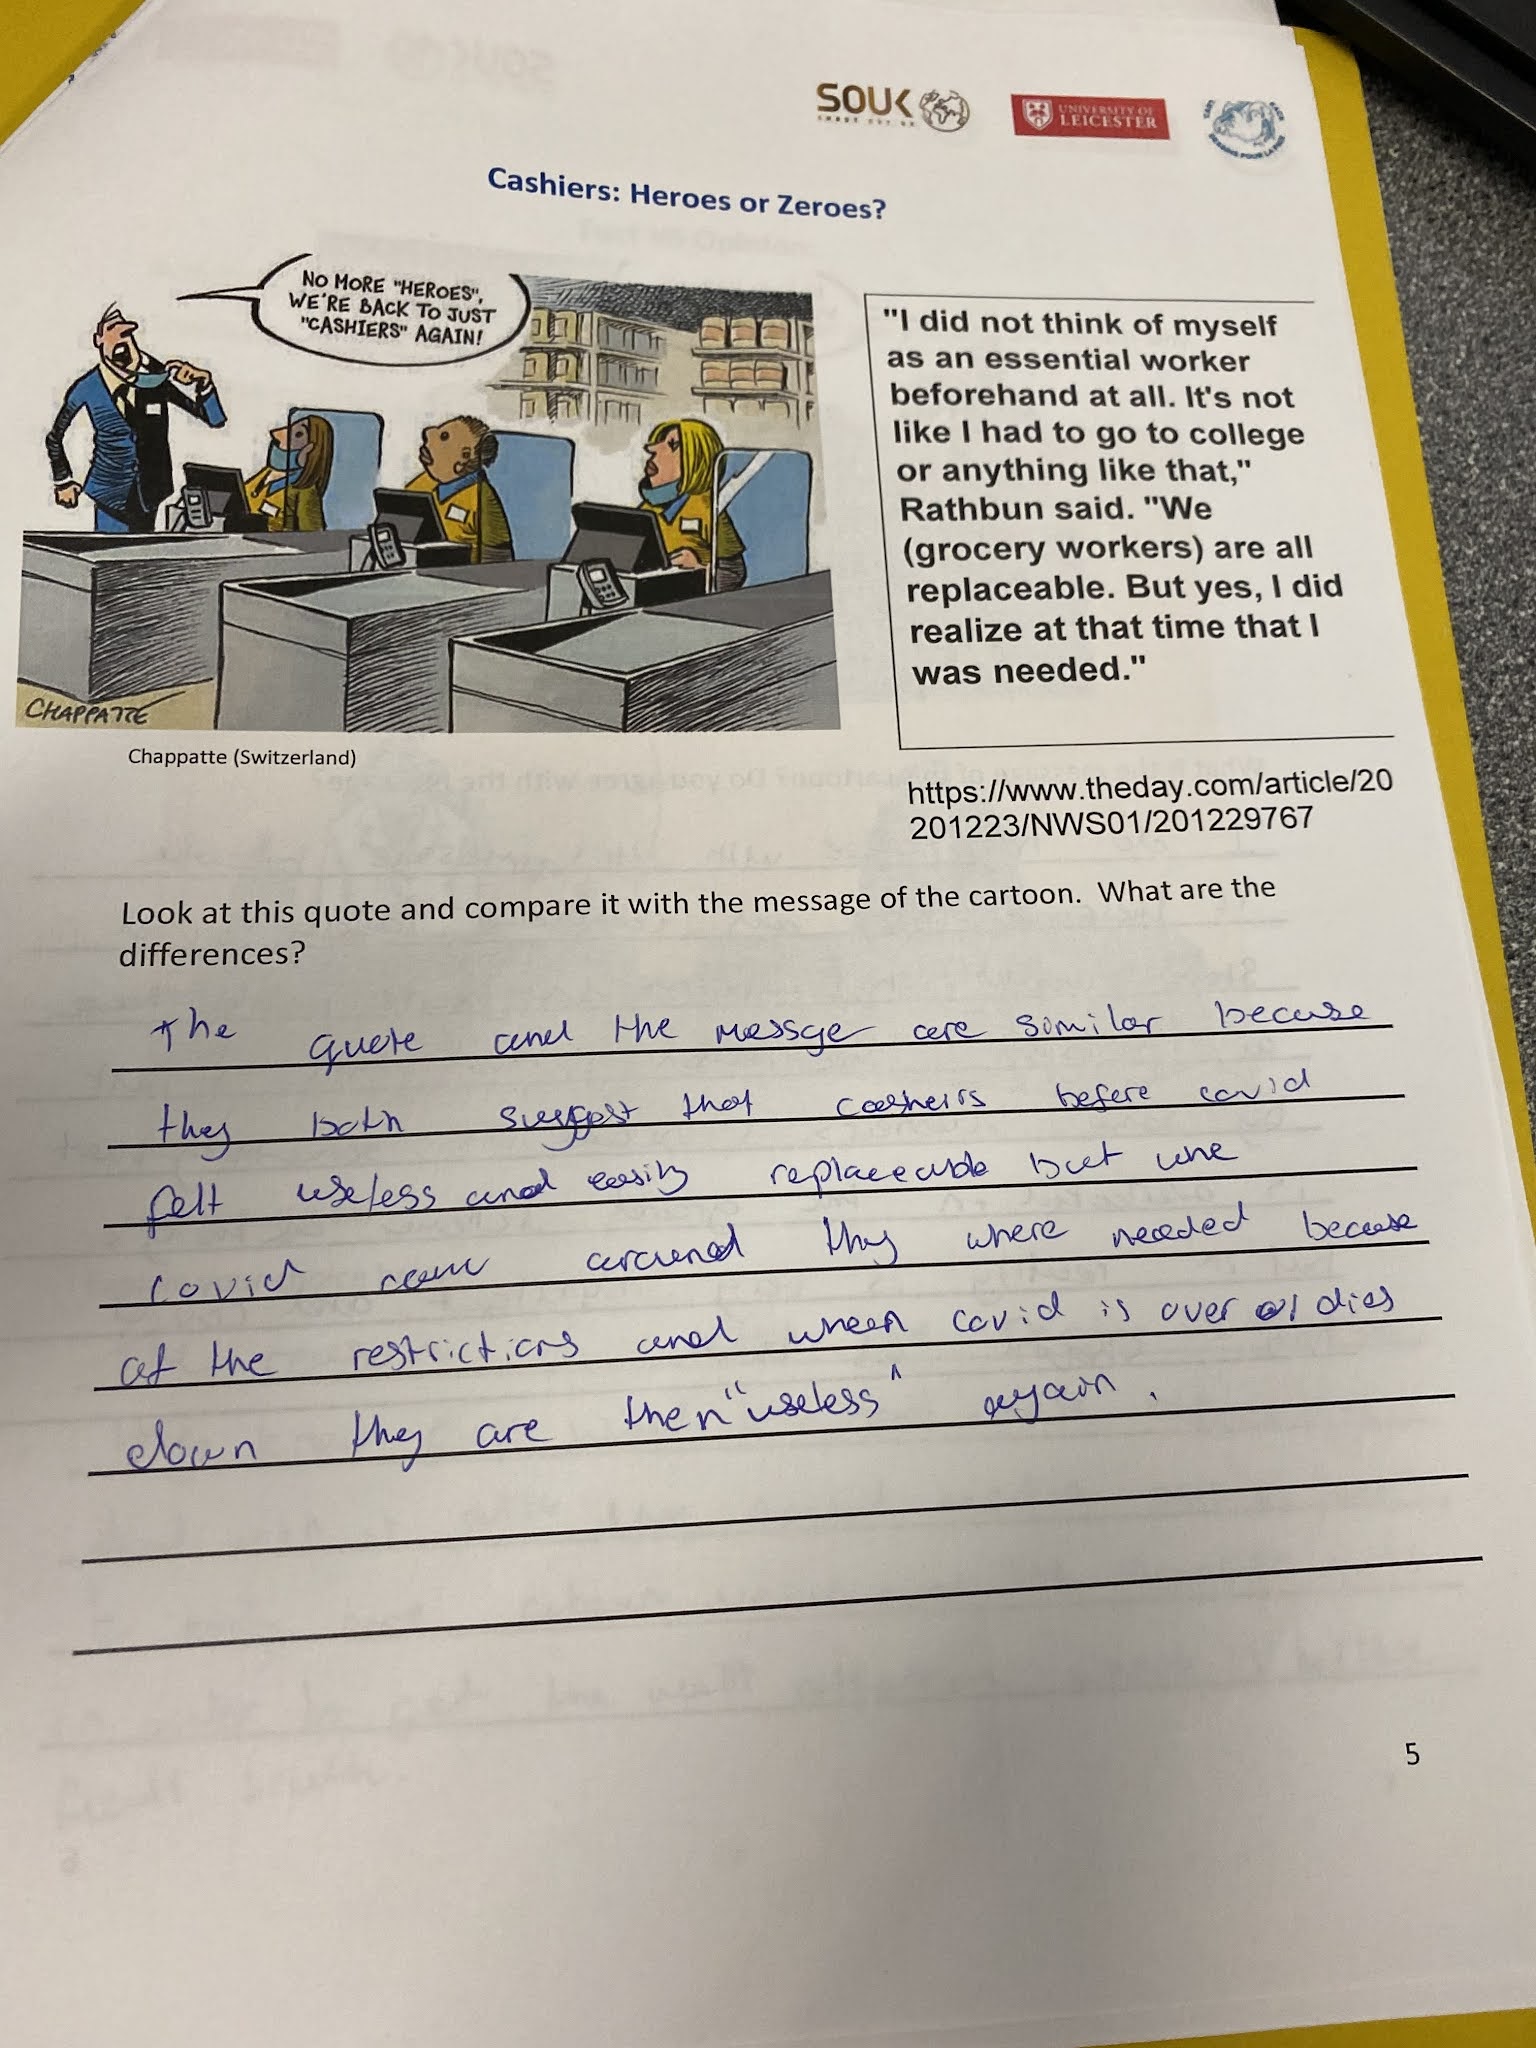 SOUK
UNIVERSITY OF
LEICESTER
Cashiers: Heroes or Zeroes?
NO MORE "HEROES",
WE'RE BACK TO JUST
"CASHIERS" AGAIN!
CHAPPATTE
Chappatte (Switzerland)
"I did not think of myself
as an essential worker
beforehand at all. It's not
like I had to go to college
or anything like that,"
Rathbun said. "We
(grocery workers) are all
replaceable. But yes, I did
realize at that time that I
was needed."
https://www.theday.com/article/20
201223/NWS01/201229767
Look at this quote and compare it with the message of the cartoon. What are the
differences?
The quote and the messge are similar because
they both suggest that casheirs before covid
felt useless and easily replaceable but whe
covid came around they where needed because
of the restrictions and when covid is over or dies
down they are then "useless" again.
5